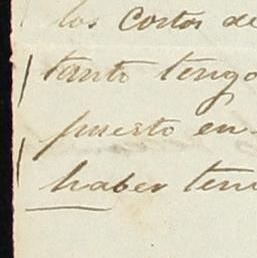 los cortos de
tanto tengo
puerto en
haber teni